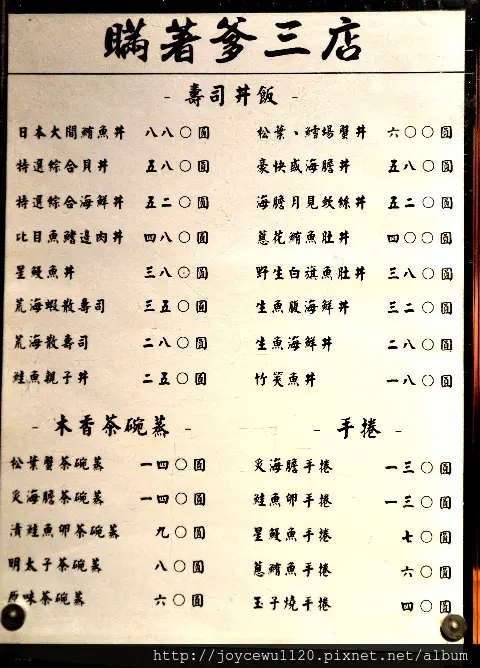 瞞著爹三店
- 壽司丼飯 -
日本大間鮪魚丼 八八〇圓
特選綜合貝丼 五八〇圓
特選綜合海鮮丼 五二〇圓
比目魚鰭邊肉丼 四八〇圓
星鰻魚丼 三八〇圓
荒海蝦散壽司 三五〇圓
荒海散壽司 二八〇圓
鮭魚親子丼 二五〇圓
松葉、鱈場蟹丼 六〇〇圓
豪快盛海膽丼 五八〇圓
海膽月見蚊絲丼 五二〇圓
蔥花鮪魚肚丼 四〇〇圓
野生白旗魚肚丼 三八〇圓
生魚腹海鮮丼 三二〇圓
生魚海鮮丼 二八〇圓
竹筴魚丼 一八〇圓
- 木香茶碗蒸 -
松葉蟹茶碗蒸 一四〇圓
炙海膽茶碗蒸 一四〇圓
漬鮭魚卵茶碗蒸 九〇圓
明太子茶碗蒸 八〇圓
原味茶碗蒸 六〇圓
- 手捲 -
炙海膽手捲 一三〇圓
鮭魚卵手捲 一三〇圓
星鰻魚手捲 七〇圓
蔥鮪魚手捲 六〇圓
玉子燒手捲 四〇圓
http://joycewu1120.pixnet.net/album